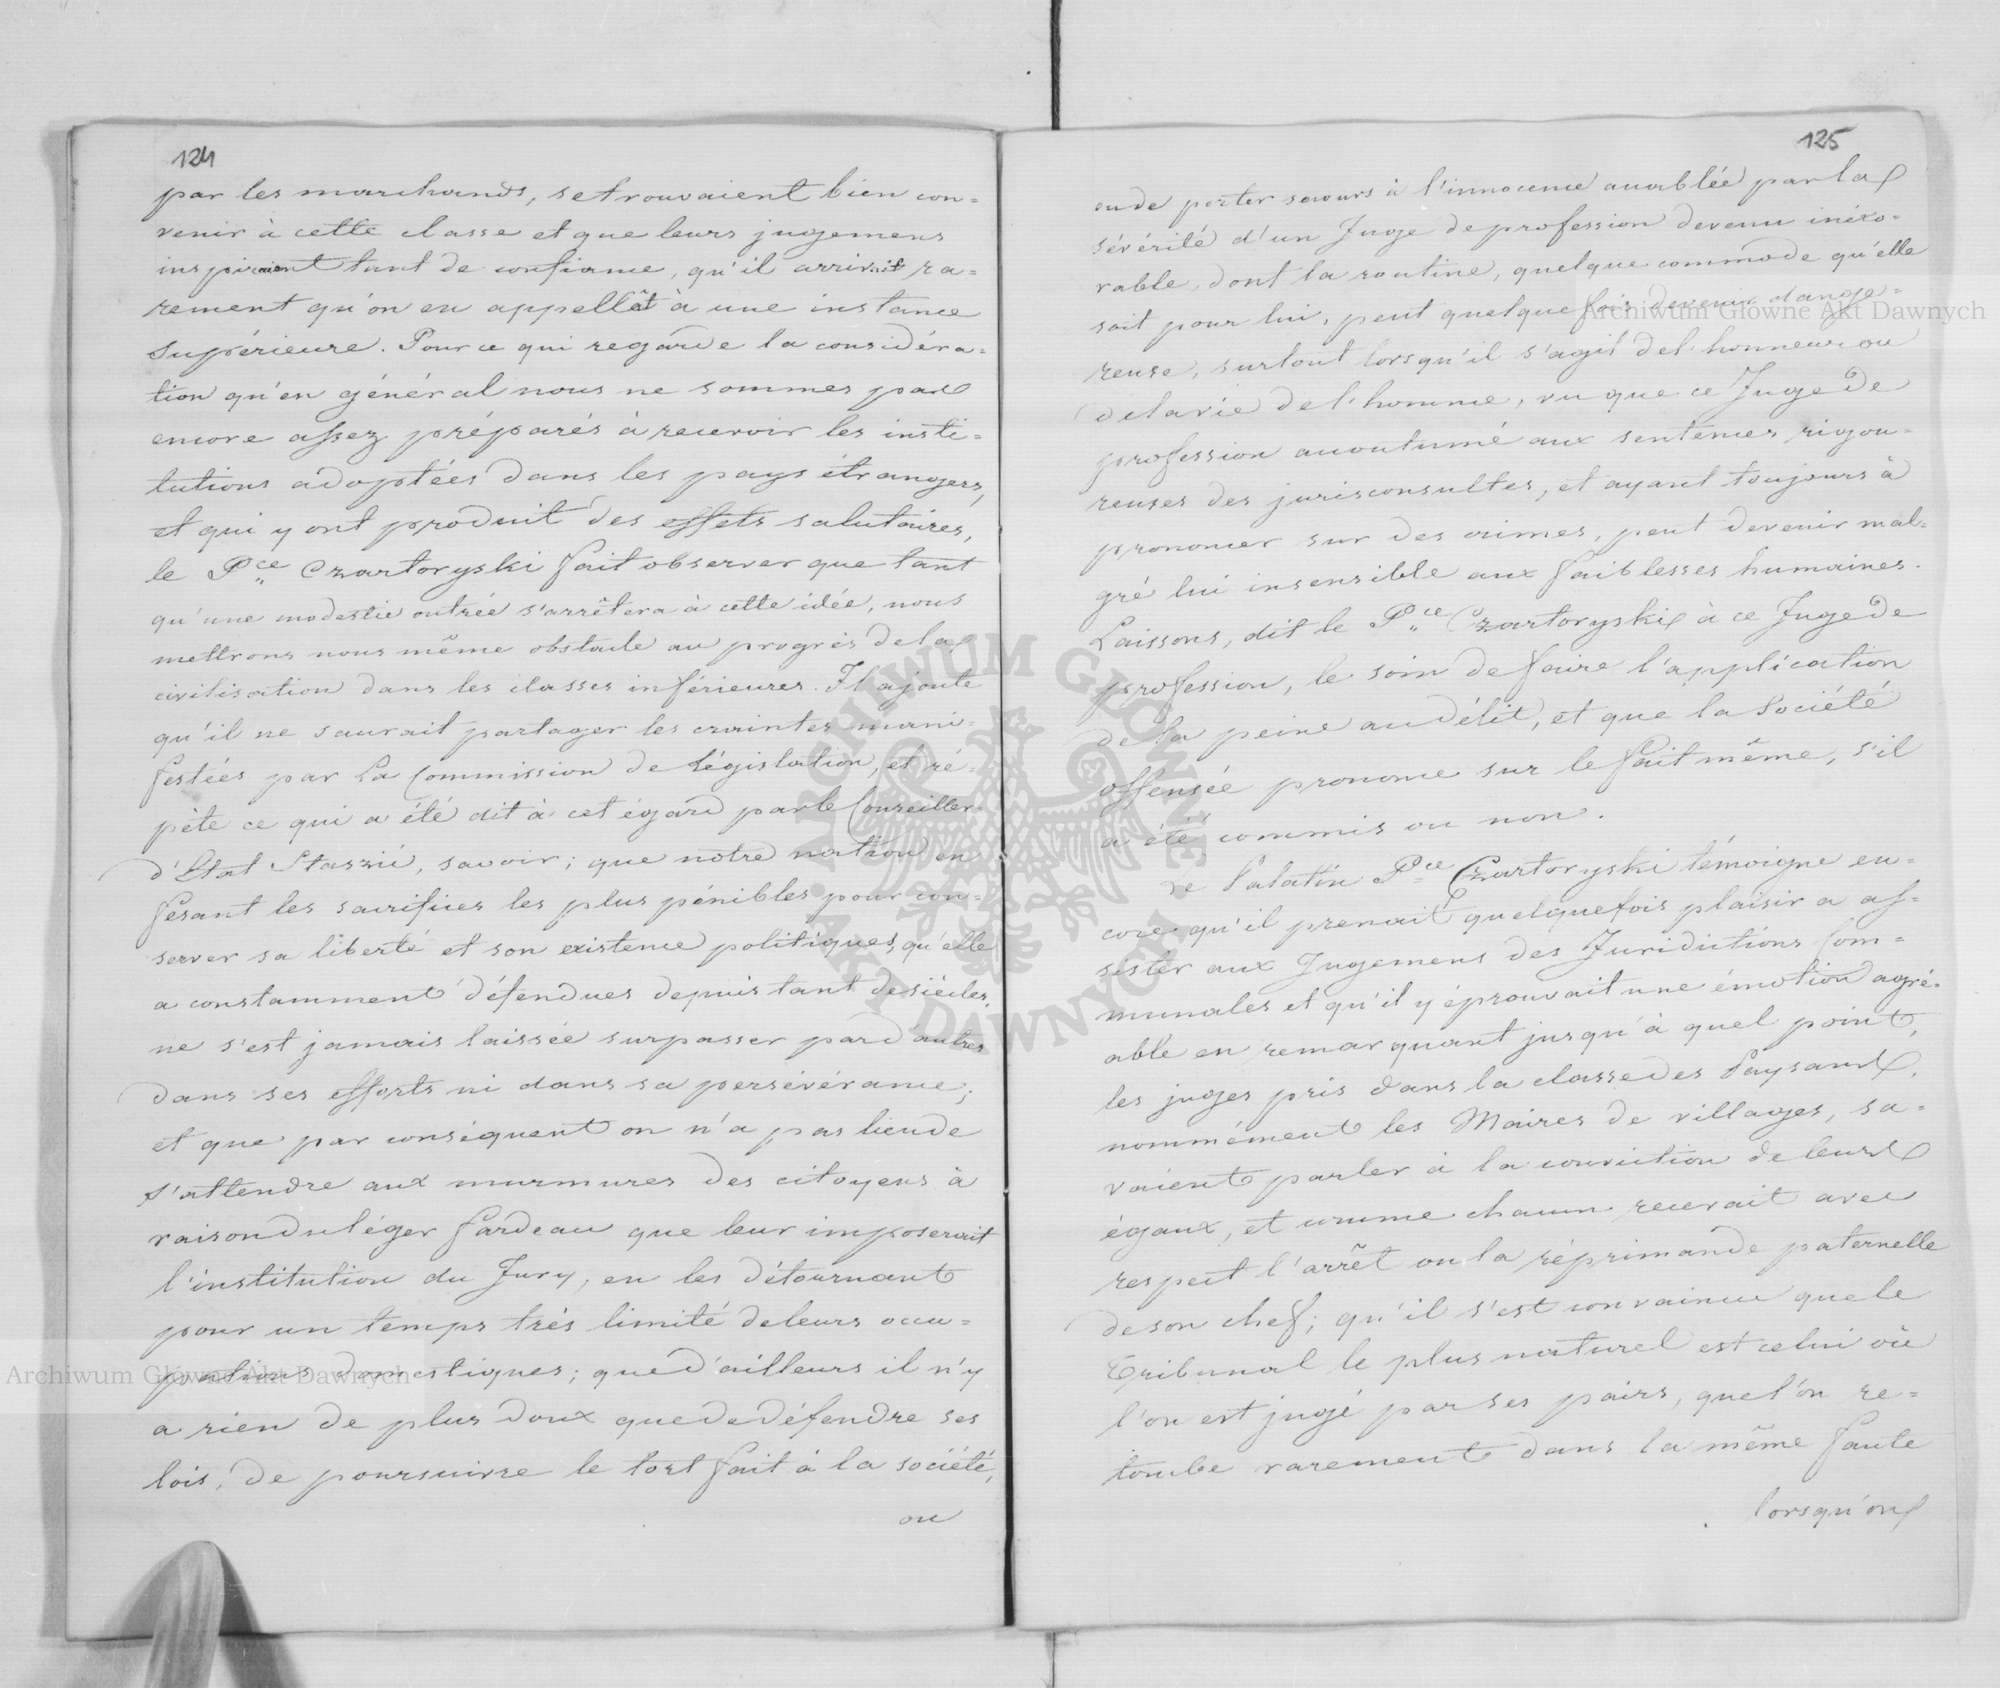 124
par les marchands, se trouvaient bien con=
venir à cette classe et que leurs jugemens
inspiraient tant de confiance, qu'il arrivait ra=
rement qu'on en appellât à une instance
supérieure. Pour ce qui regarde la considéra=
tion qu'en général nous ne sommes pas
encore assez préparés à recevoir les insti=
tutions adoptées dans les pays étrangers,
et qui y ont produit des effets salutaires,
le Pce Czartoryski fait observer que tant
qu'une modestie outrée s'arrêtera à cette idée, nous
mettrons nous même obstacle au progrès de la
civilisation dans les classes inférieures. Il ajoute
qu'il ne saurait partager les craintes mani=
festées par la Commission de Législation, et ré=
pète ce qui a été dit à cet égard par le Conseiller=
d'Etat Staszic, savoir; que notre nation en
fesant les sacrifices les plus pénibles pour con=
server sa liberté et son existence politiques, qu'elle
a constamment défendues depuis tant de siècles,
ne s'est jamais laissée surpasser par d'autres
dans ses efforts ni dans sa persévérance;
et que par conséquent on n'a pas lieu de
s'attendre aux murmures des citoyens à
raison du léger fardeau que leur imposerait
l'institution du Jury, en les détournant
pour un temps très limité de leurs occu=
pations domestiques; que d'ailleurs il n'y
a rien de plus doux que de défendre ses
lois, de poursuivre le tort fait à la société,
ou
125
ou de porter secours à l'innocence accablée par la
sévérité d'un Juge de profession devenu inéxo=
rable, dont la routine, quelque commode qu'elle
soit pour lui, peut quelquefois devenir dange=
reuse, surtout lorsqu'il s'agit de l'honneur ou
de la vie de l'homme, vu que ce Juge de
profession accoutumé aux sentences rigou=
reuses des jurisconsultes, et ayant toujours à
prononcer sur des crimes, peut devenir mal=
gré lui insensible aux faiblesses humaines.
Laissons, dit le Pce Czartoryski à ce Juge de
profession, le soin de faire l'application
de la peine au délit, et que la Société
offensée prononce sur le fait même, s'il
a été commis ou non.
Le Palatin Pce Czartoryski témoigne en=
core qu'il prenait quelquefois plaisir a as=
sister aux Jugemens des Juridictions Com=
munales et qu'il y éprouvait une émotion agré=
able en remarquant jusqu'à quel point,
les juges pris dans la classe des Paysans,
nommément les Maires de villages, sa=
vaient parler à la conviction de leurs
égaux, et comme chacun recevait avec
respect l'arrêt ou la réprimande paternelle
de son chef; qu'il s'est convaincu que le
Tribunal le plus naturel est celui où
l'on est jugé par ses pairs, que l'on re=
tombe rarement dans la même faute
lorsqu'on
Archiwum Główne Akt Dawnych
Archiwum Główne Akt Dawnych
ARCHIWUM GŁÓWNE AKT DAWNYCH